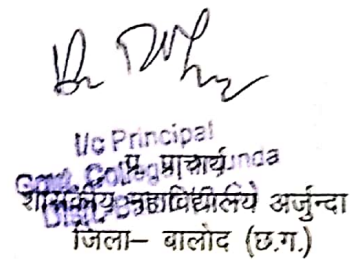 I/c Principal
Govt. College Arjunda
प्र. प्राचार्य
शासकीय महाविद्यालय अर्जुन्दा
जिला– बालोद (छ.ग.)